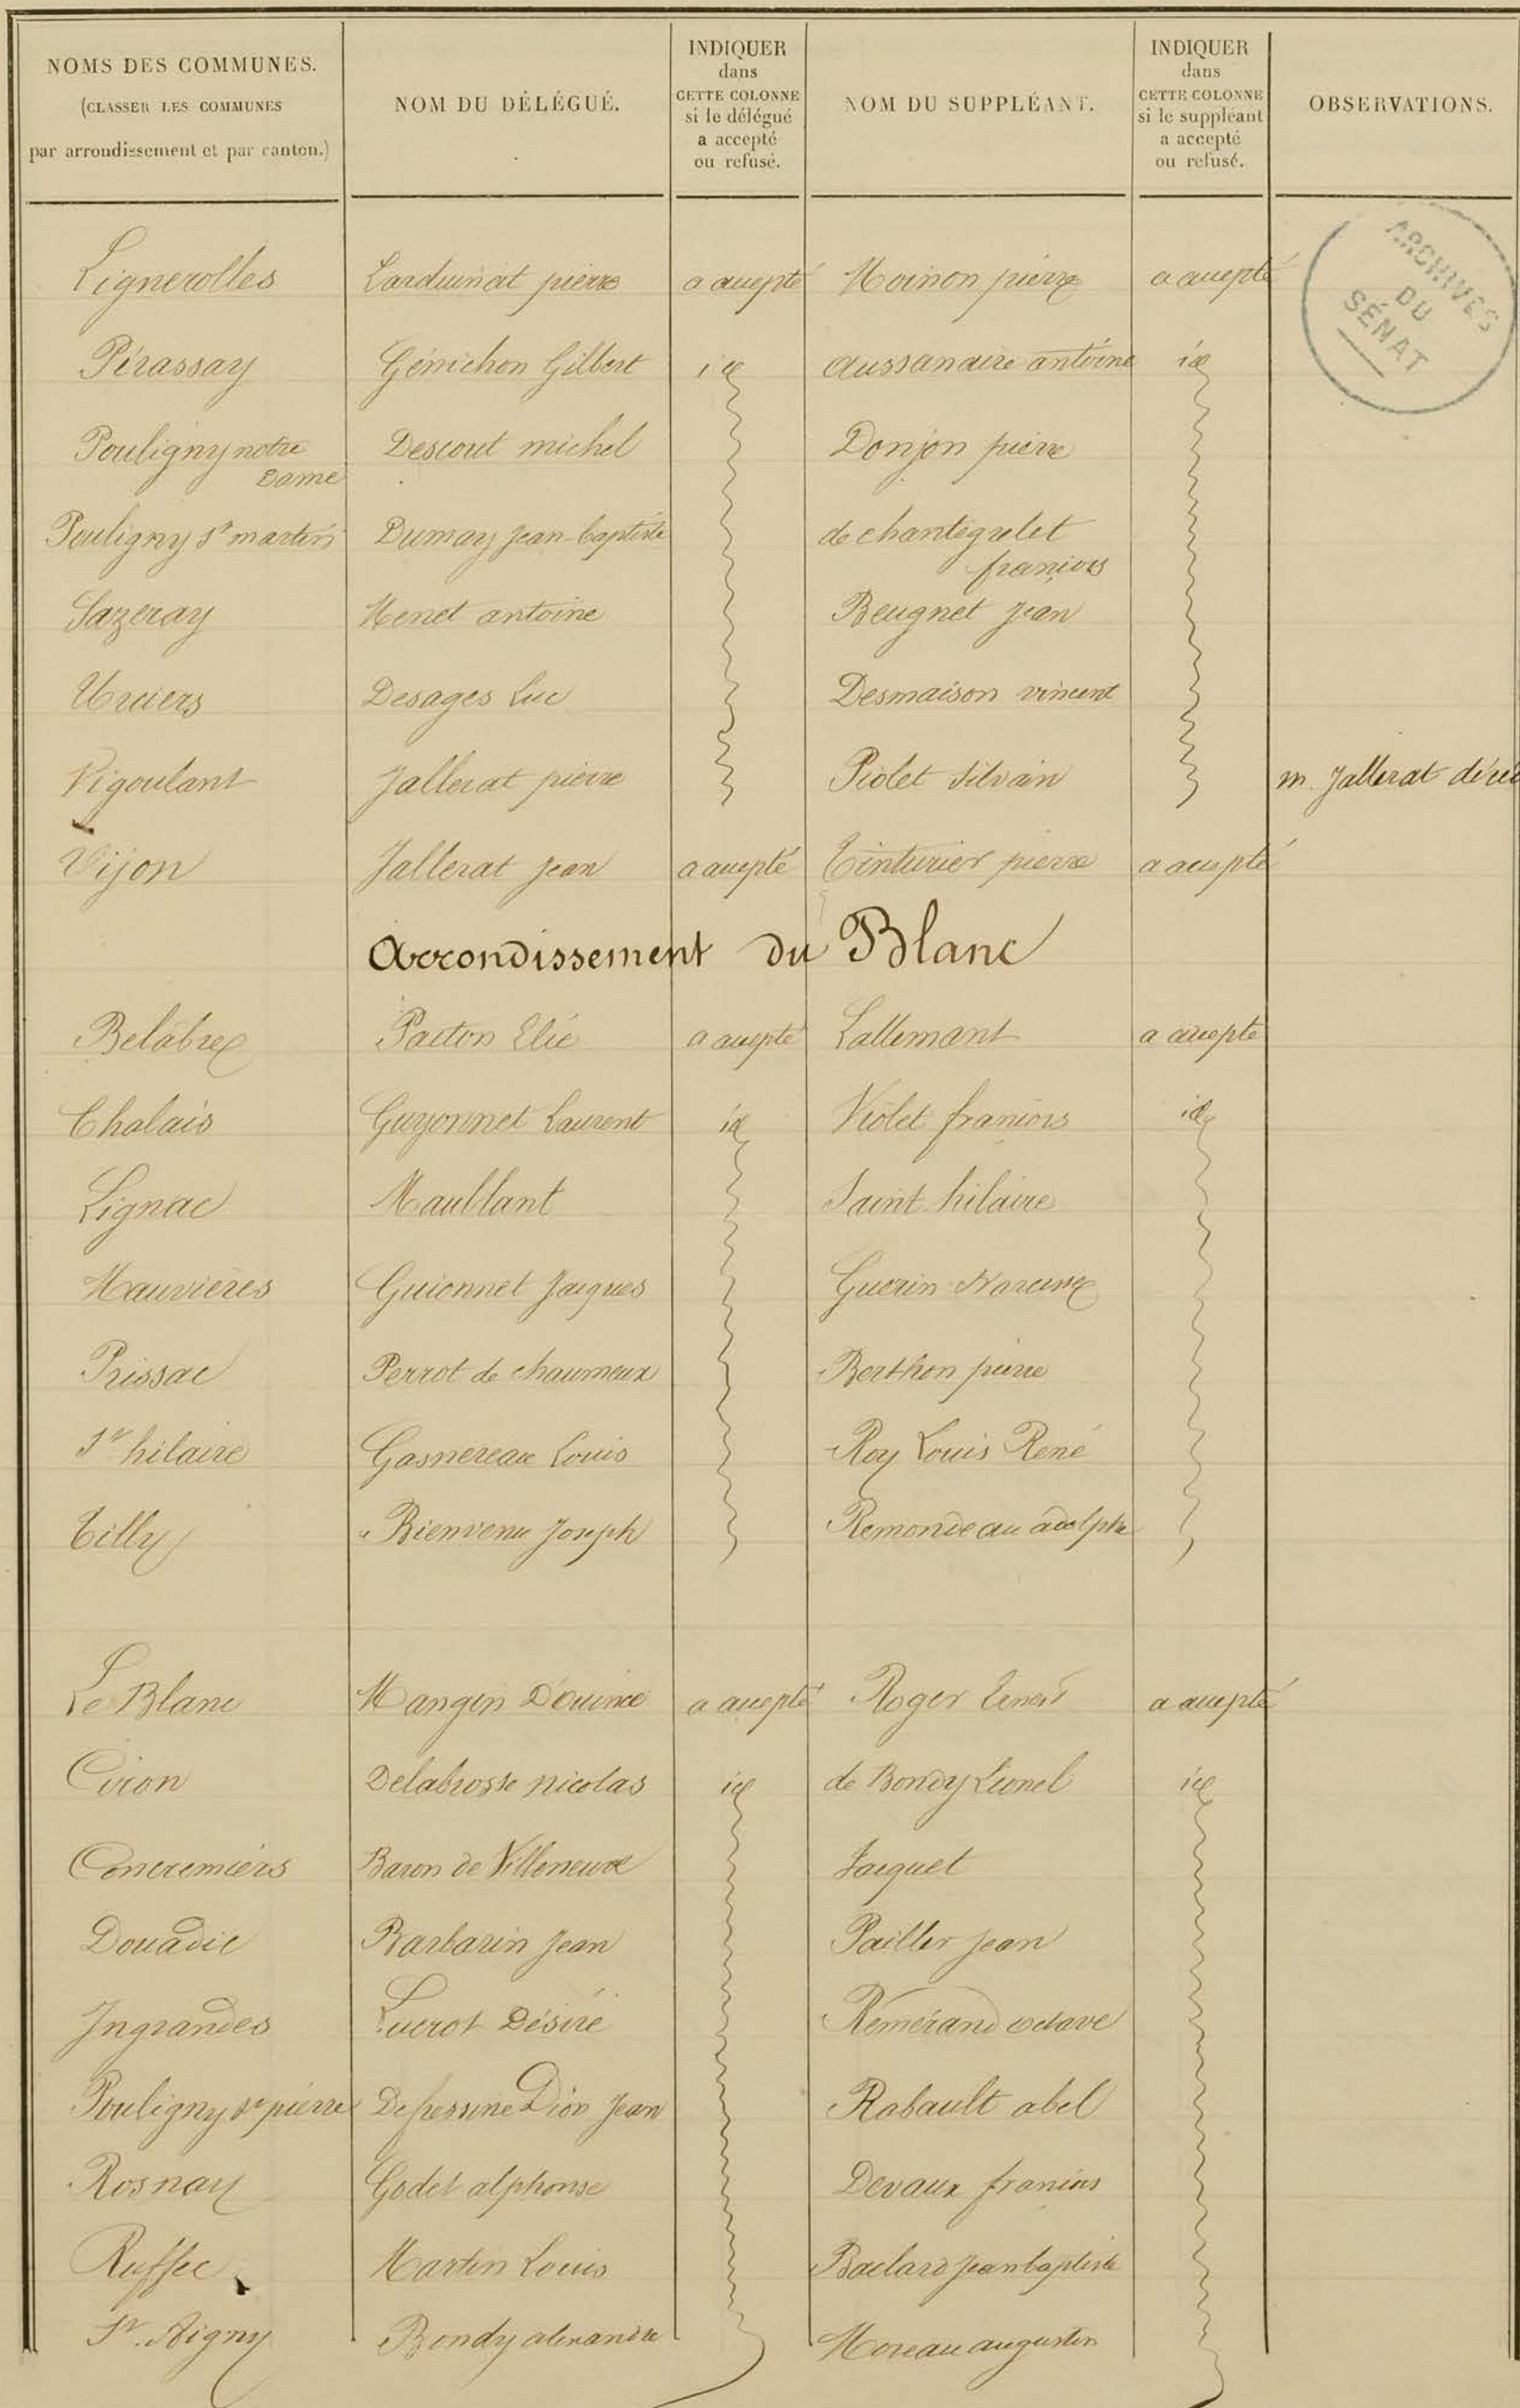 NOMS DES COMMUNES.
(CLASSER LES COMMUNES
par arrondissement et par canton.)
NOM DU DÉLÉGUÉ.
INDIQUER
dans
CETTE COLONNE
si le délégué
a accepté
ou refusé.
NOM DU SUPPLÉANT.
INDIQUER
dans
CETTE COLONNE
si le suppléant
a accepté
ou refusé.
OBSERVATIONS.
ARCHIVES
DU
SÉNAT
Lignerolles Larduinat pierre a accepté Moinon pierre a accepté
Pérassay Génichon Gilbert id Aussanaire antoine id
Pouligny notre Descout michel Donjon pierre
Dame
Pouligny St martin Dumay Jean-baptiste de chantegrelet
françois
Sazeray Menet antoine Beugnet Jean
Urciers Desages Luc Desmaison vincent
Vigoulant Jallerat pierre Piolet Silvain m. Jallerat
Vijon Jallerat Jean a accepté Tinturier pierre a accepté
Arrondissement du Blanc
Belâbre Pacton Elie a accepté Lallemant a accepté
Chalais Guyonnet Laurent id Violet françois id
Lignac Maublant Saint hilaire
Mauvières Guionnet Jacques Guerin Narcisse
Prissac Perrot de chaumeux Berthon pierre
St hilaire Gasnereau Louis Roy Louis René
Tilly Bienvenu Joseph Remondeau adolphe
Le Blanc Mangin D'ouince a accepté Roger Ernest a accepté
Ciron Delabrosse nicolas id de Bondy Léonel id
Concremiers Baron de Villeneuve Jacquet
Douadic Barbarin Jean Pailler Jean
Ingrandes Lucrot Désiré Rémérand octave
Pouligny St pierre Jean Rabault abel
Rosnay Godet alphonse Devaux françois
Ruffec Martin Louis Baclard Jean baptiste
St. Aigny Bondy alexandre Moreau augustin